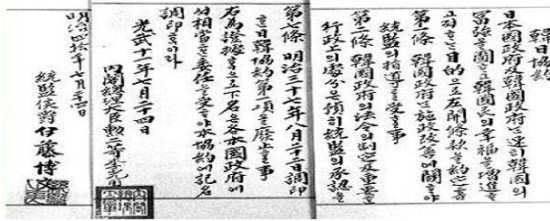 韓日協約
日本國政府及韓國政府ᄂᆞᆫ速히韓國의
富强을圖ᄒᆞ고韓國民의幸福을增進코
져ᄒᆞᄂᆞᆫ目的으로左開條款을約定홈
第一條 韓國政府ᄂᆞᆫ施政改善에關ᄒᆞ야
統監의指導을受ᄒᆞᆯ事
第二條 韓國政府의法令의制定及重要ᄒᆞᆫ
行政上의處分은預히統監의承認을
第七條 明治三十七年八月二十二日調印
ᄒᆞᆫ日韓協約第一項을廢止ᄒᆞᆯ事
右爲證據홈으로下名은各本國政府에
셔相當ᄒᆞᆫ委任을受ᄒᆞ야本協約에記名
調印홈이라
光武十一年七月二十四日
內閣總理大臣勳二等李完用
明治四十年七月二十四日
統監侯爵伊藤博